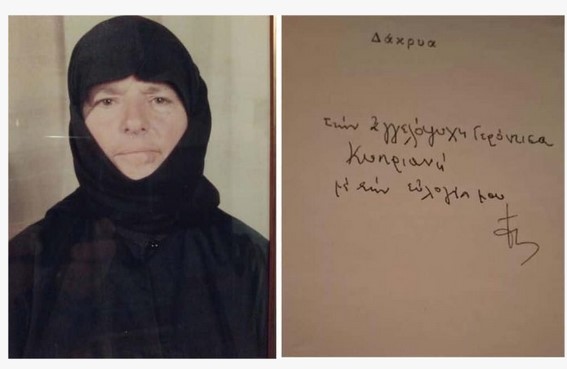 Δάκρυα
τήν Ἀγγελόψυχη Γερόντισα
Κυπριανή
μέ τήν εὐλογία μου